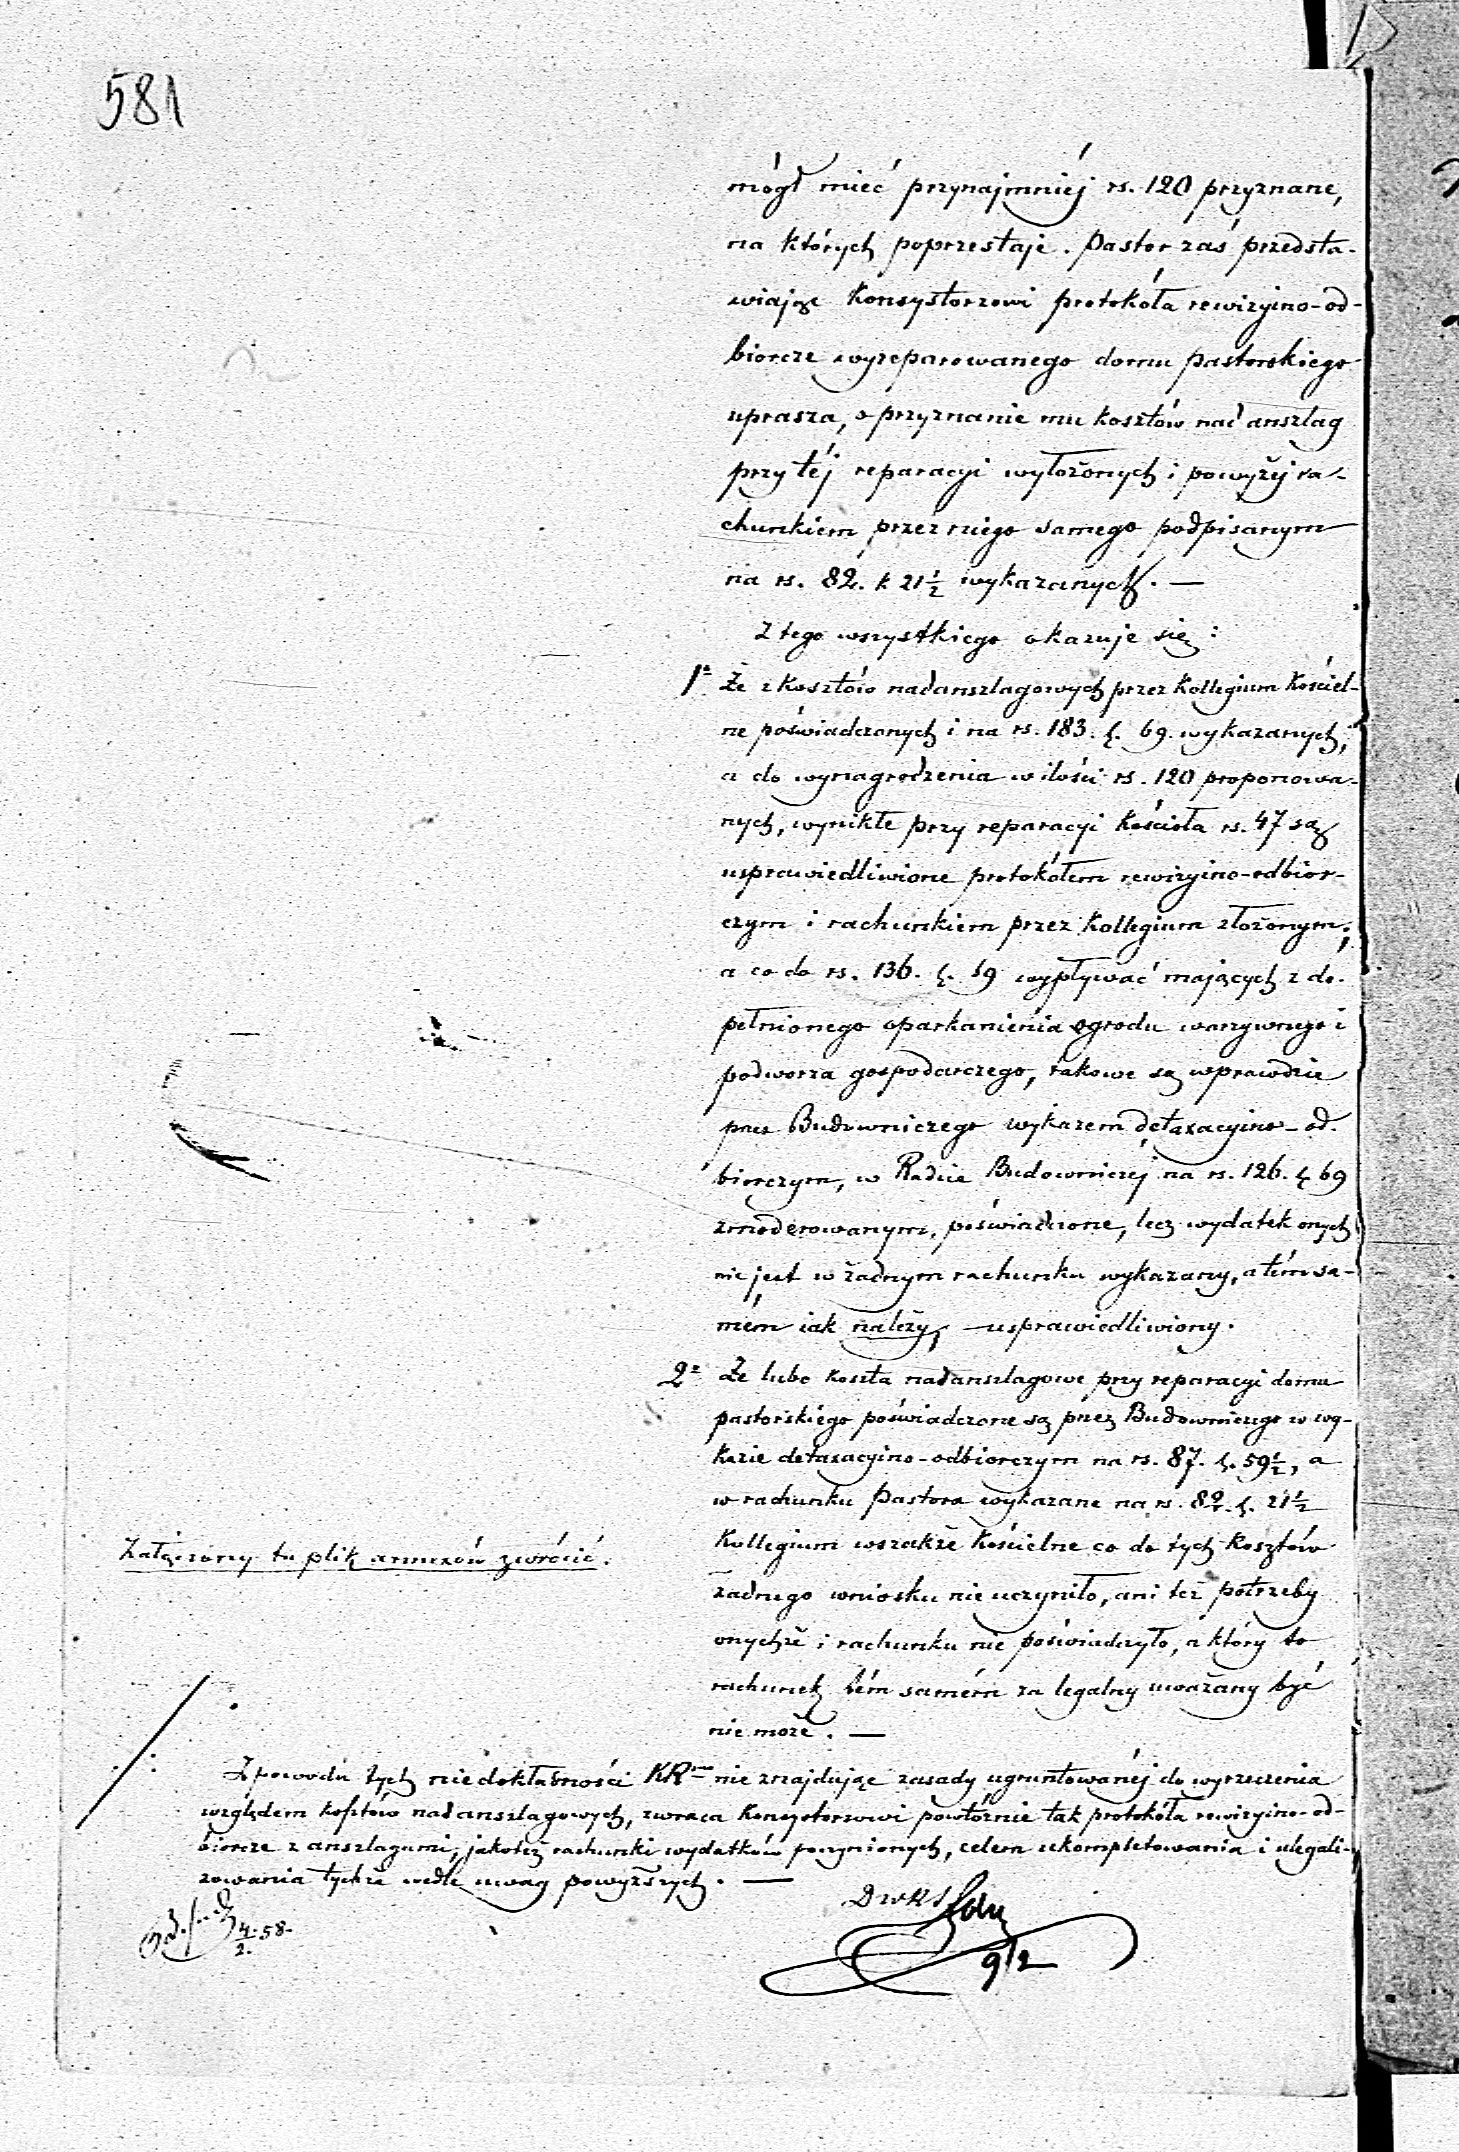 581
mógł mieć przynajmniéj rs. 120 przyznane,
na których poprzestaje. Pastor zaś przedsta-
wiając Konsystorzowi protokóła rewizyjno-od-
biorcze wyreparowanego domu pastorskiego
uprasza, o przyznanie mu kosztów nad anszlag
przy téj reparacyi wyłożonych i powyżéj ra-
chunkiem przez niego samego podpisanym
na rs. 82. k 21½ wykazanych. —
Z tego wszystkiego okazuje się:
1° Że z kosztów nadanszlagowych przez Kollegium Kościel-
ne poświadczonych i na rs. 183. k. 69. wykazanych,
a do wynagrodzenia w ilości rs. 120 proponowa-
nych, wynikłe przy reparacyi Kościoła rs. 47 są
usprawiedliwione protokółem rewizyjno-odbior-
czym i rachunkiem przez Kollegium złożonym;
a co do rs. 136. k. 69 wypływać mających z do-
pełnionego oparkanienia ogrodu warzywnego i
podworza gospodarczego, takowe są wprawdzie
przez Budowniczego wykazem detaxacyjno-od-
biorczym, w Radzie Budowniczéj na rs. 126. k 69
zmoderowanym, poświadczone, lecz wydatek onych
nie jest w żadnym rachunku wykazany, a tém sa-
mém jak należy, usprawiedliwiony.
2° Że lubo koszta nadanszlagowe przy reparacyi domu
pastorskiego poświadczone są przez Budowniczego w wy-
kazie detaxacyjno-odbiorczym na rs. 87. k. 59½, a
w rachunku Pastora wykazane na rs. 82. k. 21½
Kollegium wszakże Kościelne co do tych kosztów
żadnego wniosku nie uczyniło, ani też potrzeby
onychże i rachunku nie poświadczyło, a który to
rachunek tém samém za legalny uważany być
nie może. —
Załączony tu plik annexów zwrócić.
Z powodu tych niedokładności KR nie znajdując zasady ugruntowanéj do wyrzeczenia
względem kosztów nadanszlagowych, zwraca Konsystorzowi powtórnie tak protokóła rewizyjno-od-
biorcze z anszlagami, jakoteż rachunki wydatków poczynionych, celem ukompletowania i ulegali-
zowania tychże wedle uwag powyższych. —
4/2. 58.
9/2